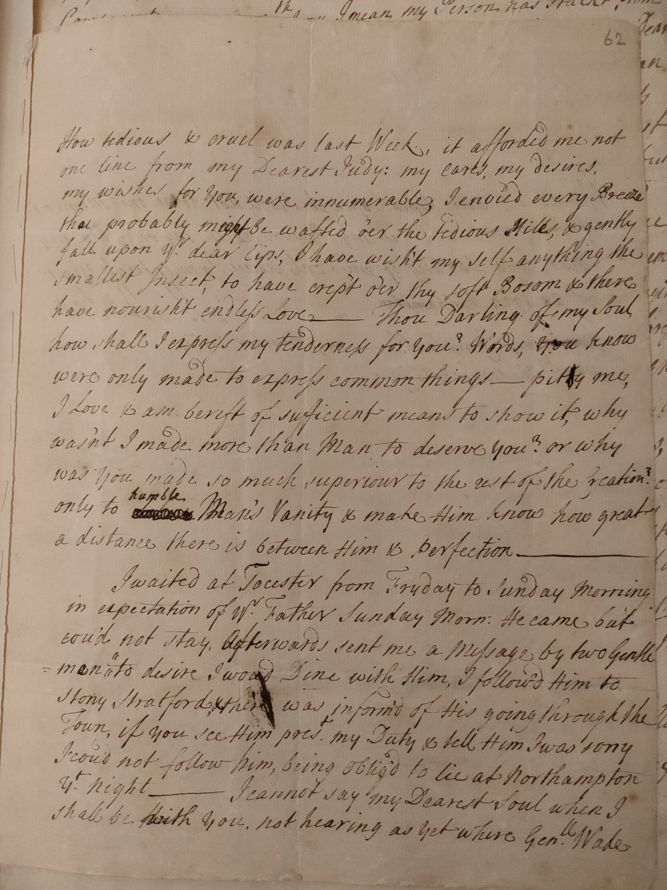 I mean my Person has
62
How tedious & cruel was last Week, it afforded me not
one line from my Dearest Judy: my cares, my desires,
my wishes for You, were innumerable, I envied every Breeze
that probably might be wafted o'er the tedious Hills, & gently
fall upon yr. dear Lips, I have wish't my self anything the
smallest Insect, to have crept o'er thy soft Bosom & there
have nourish't endless Love — Thou Darling of my Soul
how shall I express my tenderness for You? Words, You know
were only made to express common things — pitty me,
I Love & am bereft of sufficient means to show it, why
wasn't I made more than Man to deserve You? or why
was You made so much superiour to the rest of the Creation?
only to humble Man's Vanity & make Him know how great
a distance there is between Him & Perfection —
I waited at Tocester from Fryday to Sunday Morning
in expectation of Yr Father Sunday Morn: He came but
cou'd not stay, Afterwards sent me a Message by two Gentle
=men to desire I wou'd Dine with Him, I follow'd Him to
Stony Stratford, & there was inform'd of His going through the
Town, if you see Him pres.t my Duty & tell Him I was sorry
I cou'd not follow him, being oblig'd to lie at Northampton
yt. Night — I cannot say my Dearest Soul when I
shall be with You, not hearing as yet where Gen.ll Wade